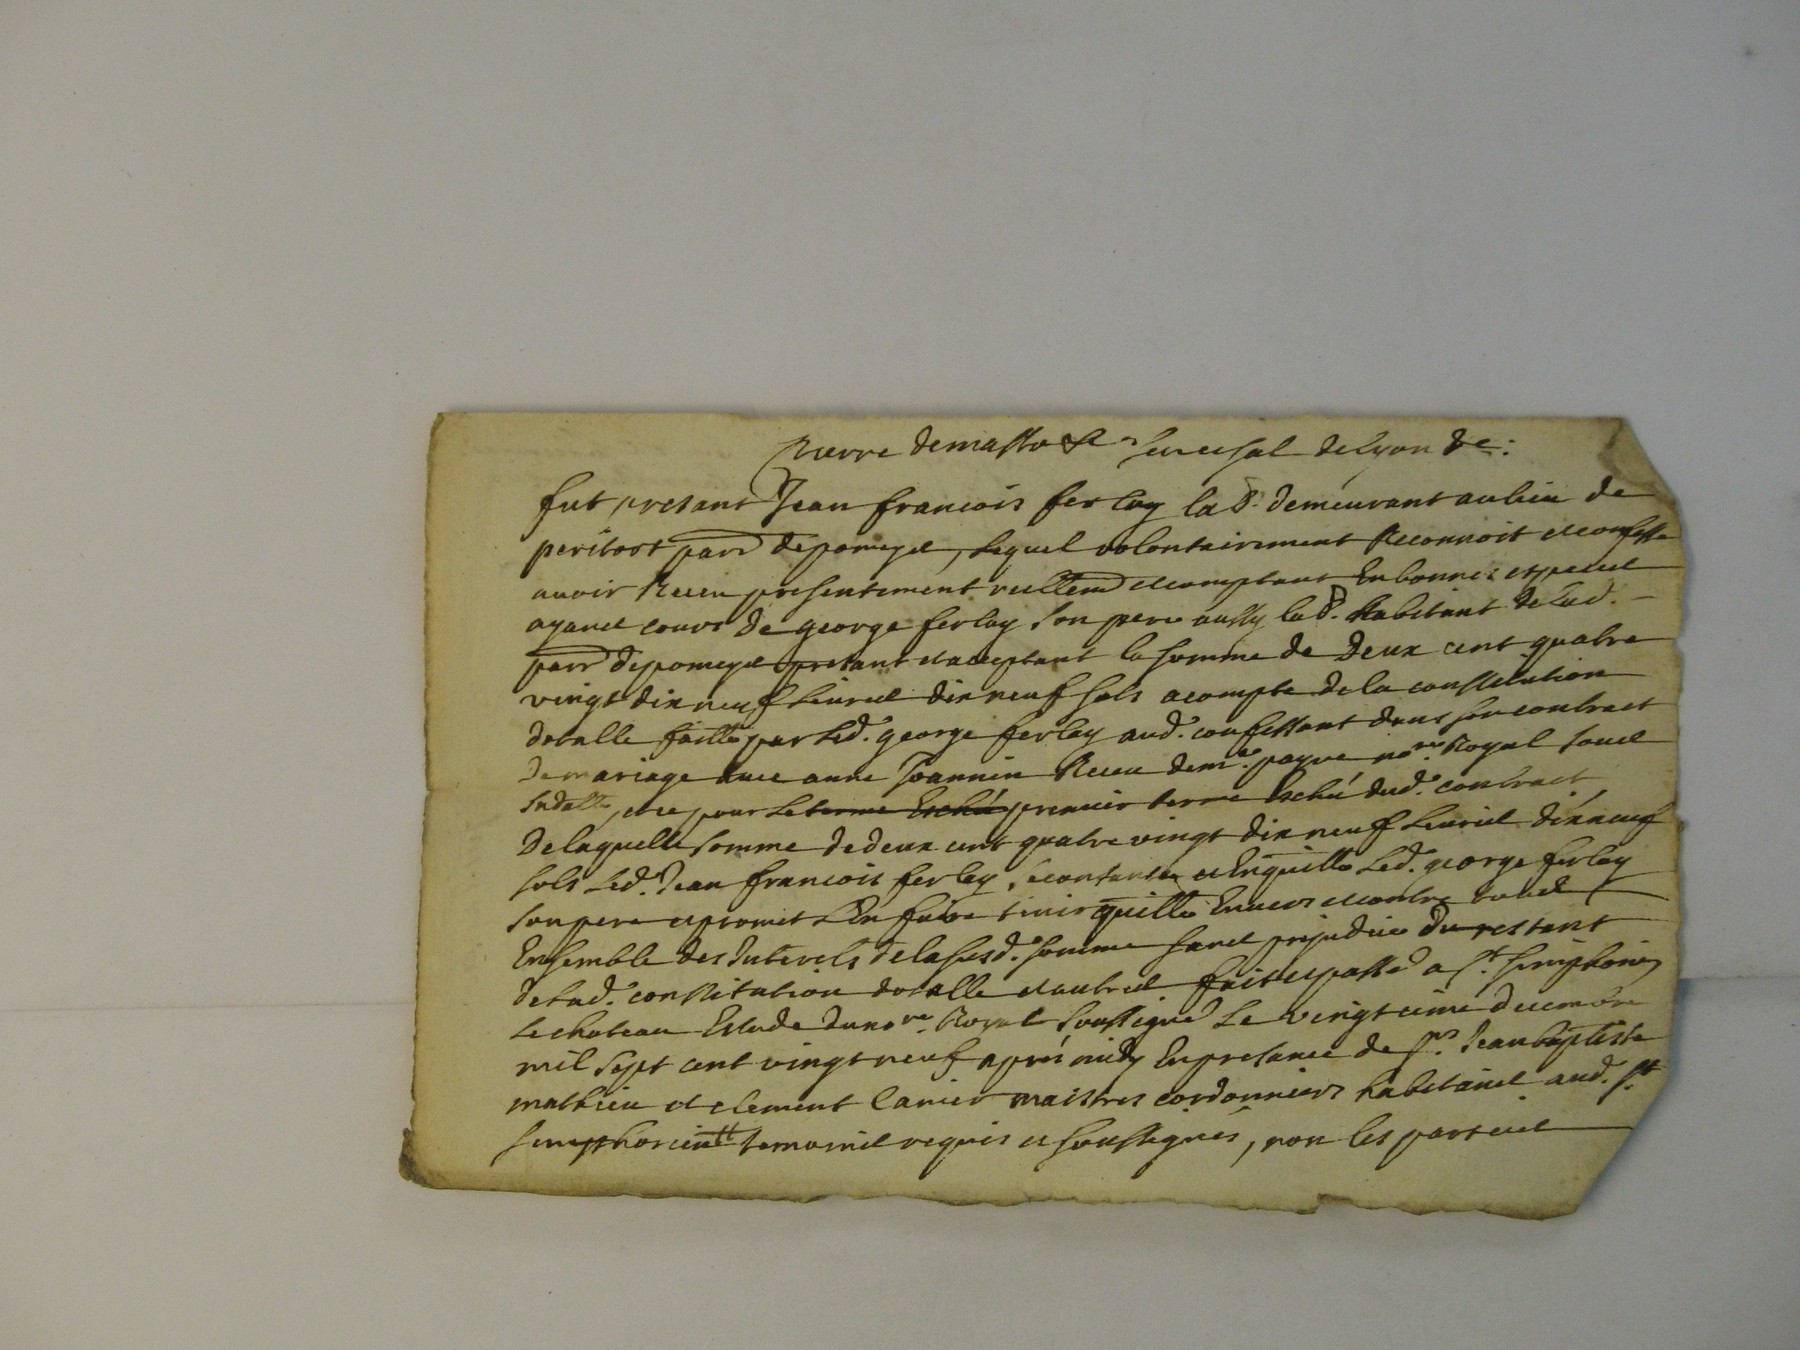 Pierre demasso &c senechal de lyon &c:
fut presant Jean francois ferlay lab.r demeurant au lieu de
peritort parr depomeys, lequel volontairement Reconnoit et confesse
avoir Receu presentement reellem et comptant En bonnes especes
ayant cours de george ferlay son pere aussy lab.r habitant delad. -
parr depomeys presant et acceptant la somme de Deux cent quatre
vingt dix neuf Livres dix neuf sols acompte de la constitution
dotalle faitte par Led. george ferlay aud. confessant dans son contract
de mariage avec anne Joannin Receu dem.e payre no.re Royal sous
Sa datte, et ce pour Le terme Eschû premier terme Eschû dud. contract
De laquelle somme de deux cent quatre vingt dix neuf Livres dixneuf
sols Led. Jean francois ferlay, se contante et En quitte Led. george ferlay
son pere et promet L'En faire tenir quitte Envers et contre tous
Ensemble des Interests de la susd. somme sans prejudice du restant
delad. constitution dotalle et autres fait et passé a S.t simphorien
Le chateau Estude du no.re Royal soussigné Le vingtieme decembre
mil sept cent vingt neuf aprés midy En presance de s.rs Jean baptiste
mathieu et clement Canier maistres cordonniers habitans aud. S.t
simphorien temoins requis et soussignés, non les parties